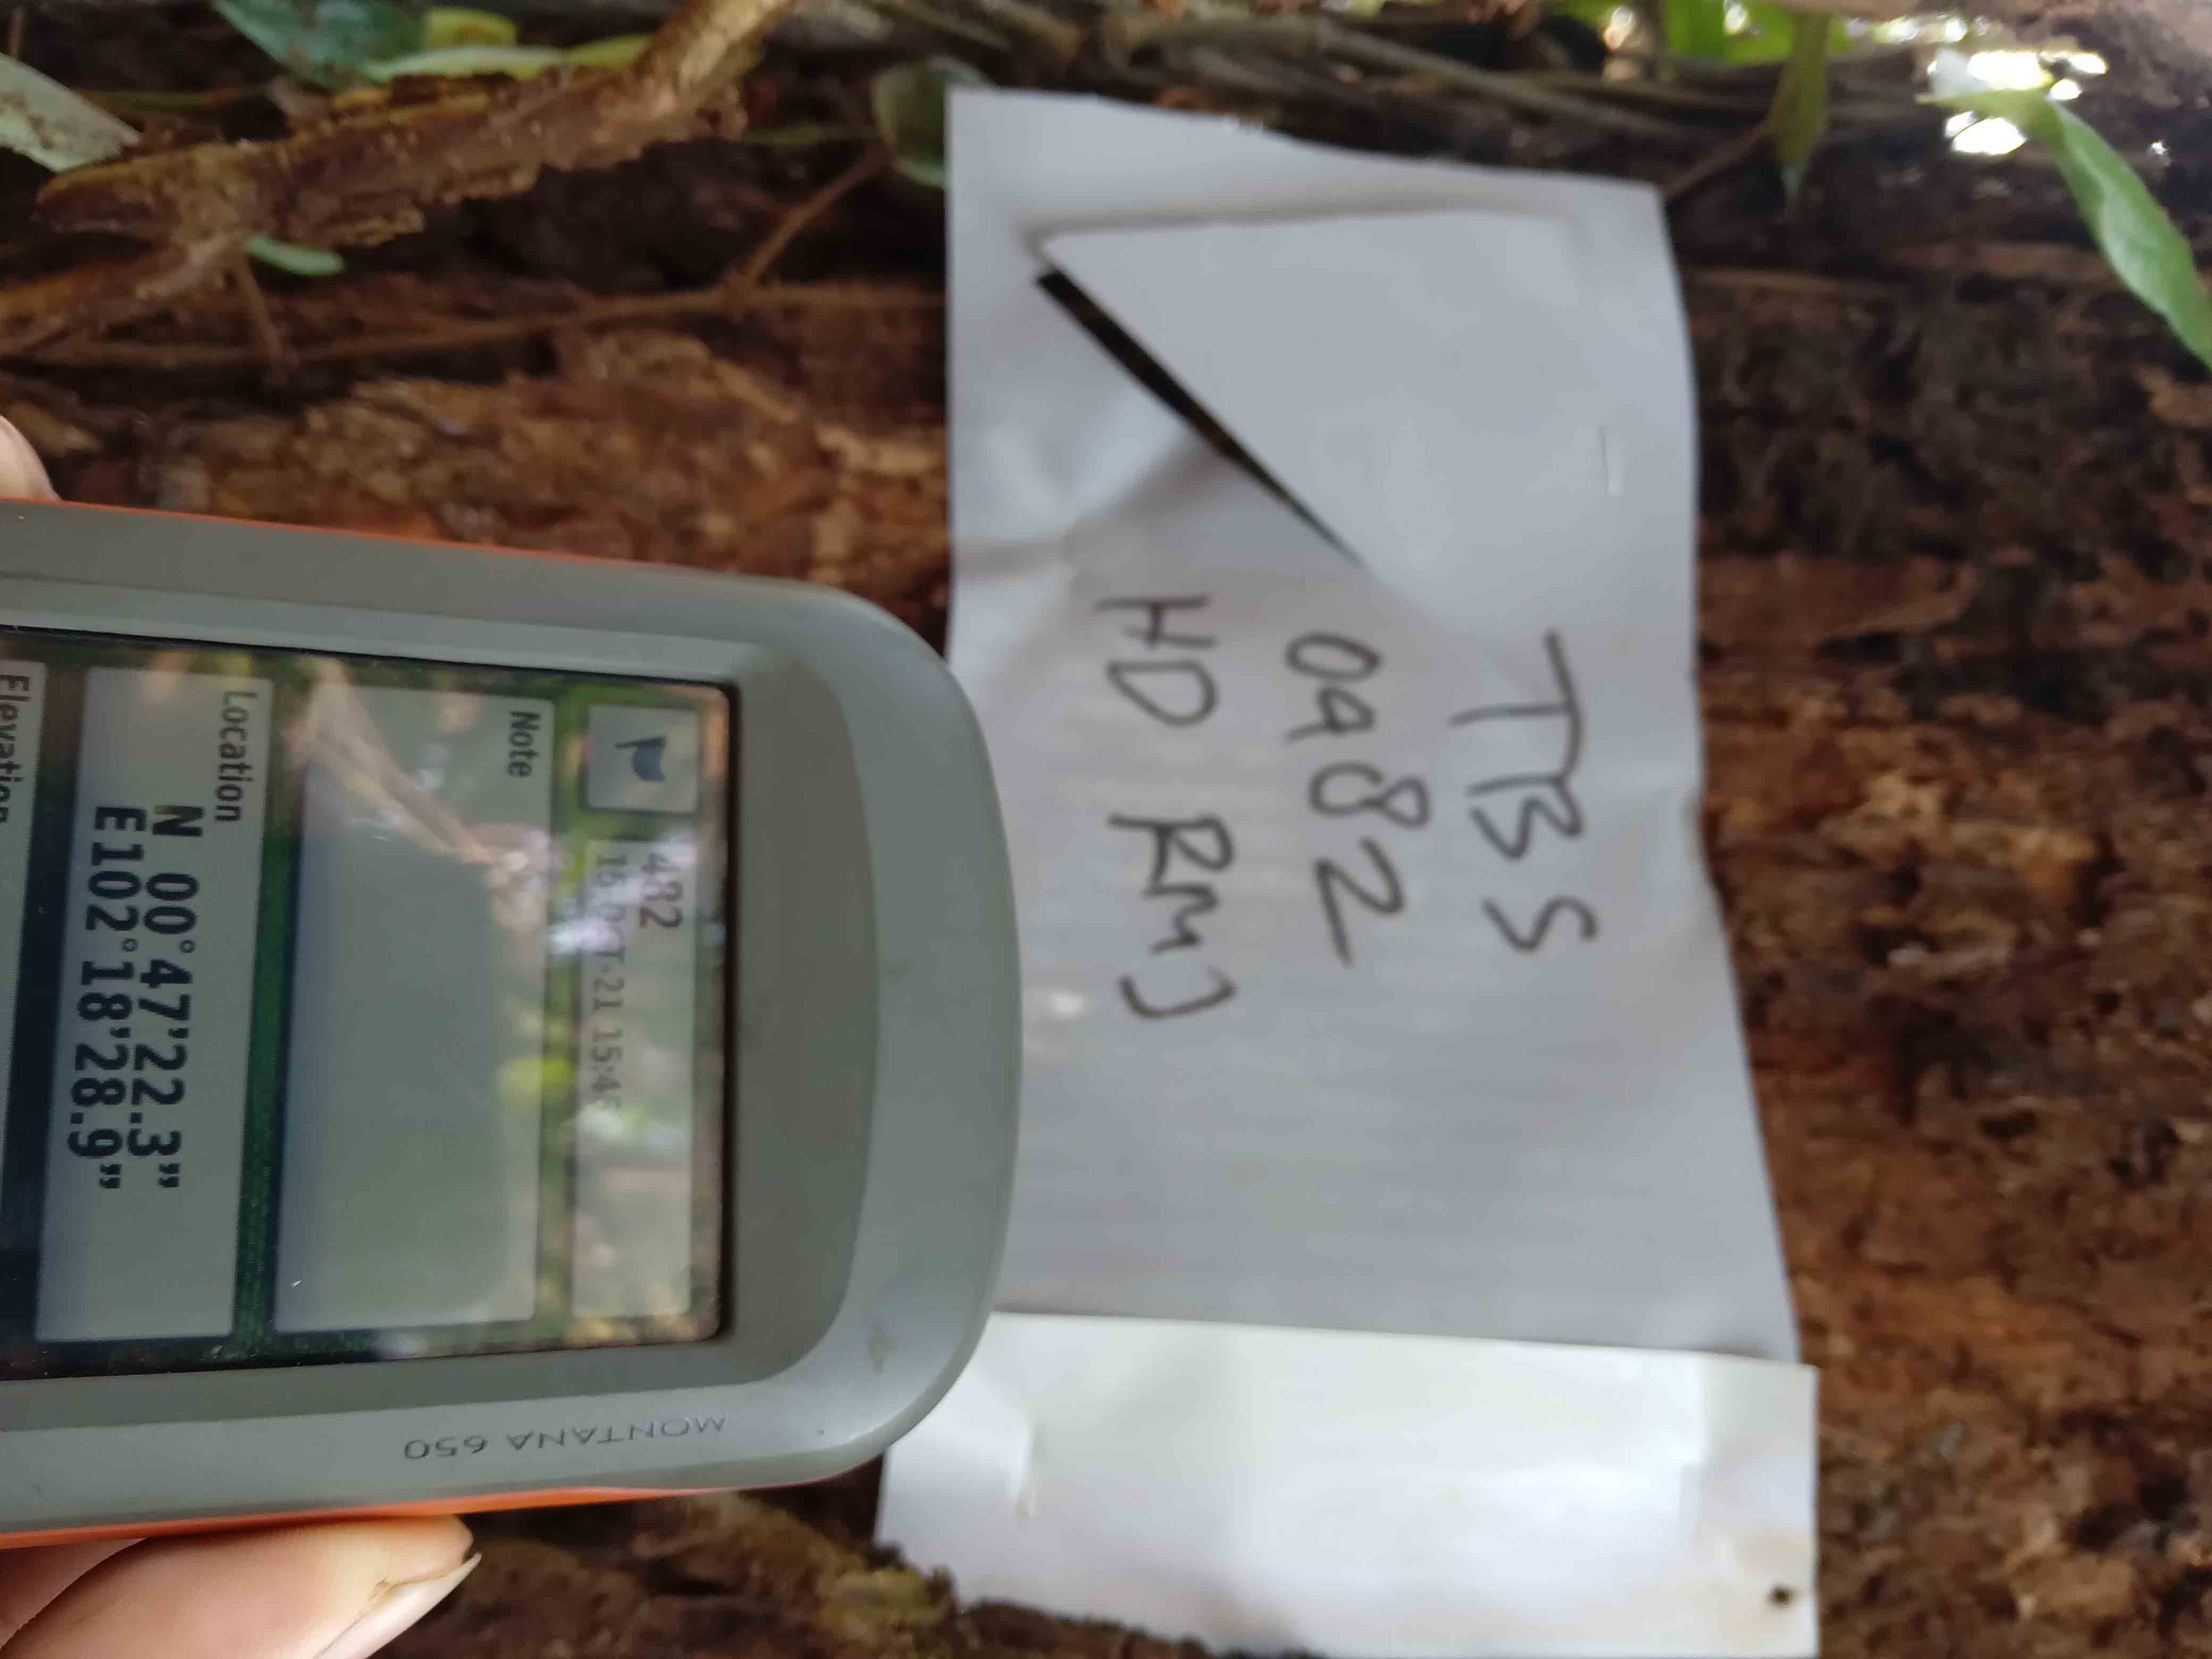 TBS
0982
HD RMJ
482
Note
Location
N 00°47'22.3"
E102°18'28.9"
Elevation
MONTANA 650